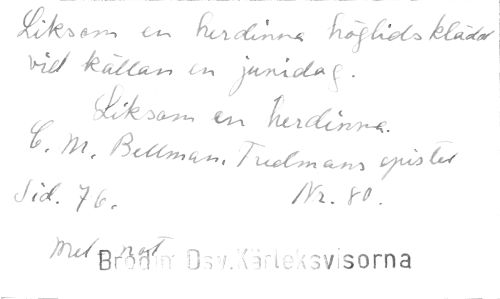 Liksom en herdinna högtidsklädd
vid källan en junidag.
Liksom en herdinna.
C. M. Bellman. Fredmans epistel
Sid. 76. Nr. 80.
Med not
Brodin Dsv. Kärleksvisorna